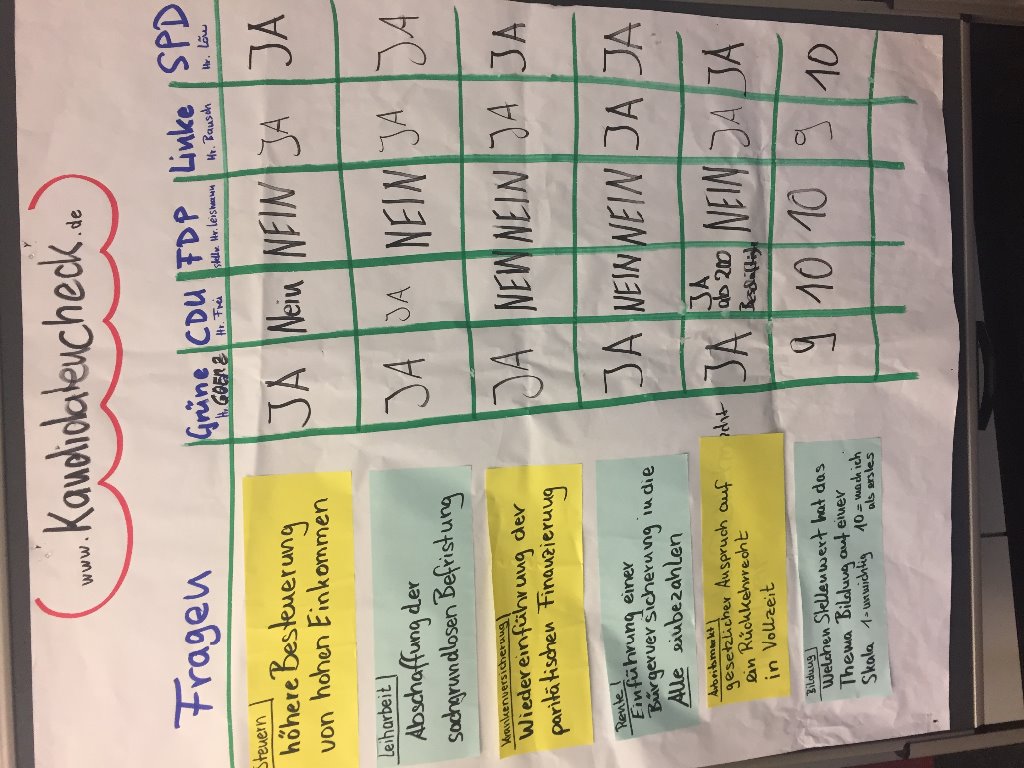 www.Kandidatencheck.de
Fragen Grüne CDU FDP Linke SPD
Hr. Hr. Frei Hr. Leismann Hr. Rausch Hr. Löw
Steuern
höhere Besteuerung
von hohen Einkommen
JA Nein NEIN JA JA
Leiharbeit
Abschaffung der
sachgrundlosen Befristung
JA JA NEIN JA JA
Krankenversicherung
Wiedereinführung der
paritätischen Finanzierung
JA NEIN NEIN JA JA
Rente
Einführung einer
Bürgerversicherung in die
Alle einbezahlen
JA NEIN NEIN JA JA
Arbeitsmarkt
gesetzlicher Anspruch auf
ein Rückkehrrecht
in Vollzeit
JA JA NEIN JA JA
ab 200
Bildung
Welchen Stellenwert hat das
Thema Bildung auf einer
Skala 1=unwichtig 10=mach ich
als erstes
9 10 10 9 10